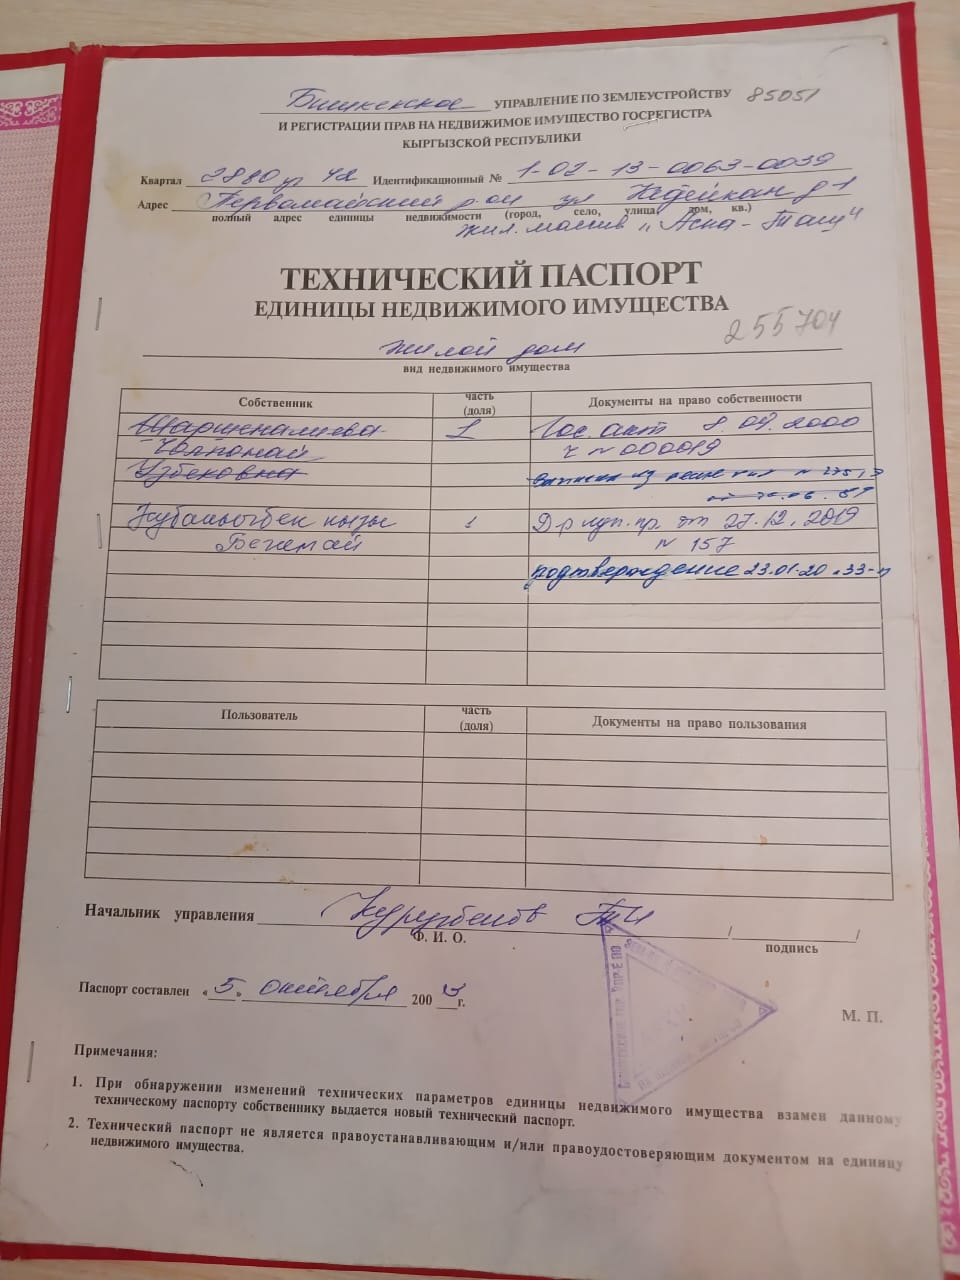 Бишкекское УПРАВЛЕНИЕ ПО ЗЕМЛЕУСТРОЙСТВУ 85051
И РЕГИСТРАЦИИ ПРАВ НА НЕДВИЖИМОЕ ИМУЩЕСТВО ГОСРЕГИСТРА
КЫРГЫЗСКОЙ РЕСПУБЛИКИ
Квартал 2880 уч 42 Идентификационный № 1-02-13-0063-0039
Адрес Первомайский р-он ул д-1
полный адрес единицы недвижимости (город, село, улица, дом, кв.)
жил. массив "Аска-Таш"
ТЕХНИЧЕСКИЙ ПАСПОРТ
ЕДИНИЦЫ НЕДВИЖИМОГО ИМУЩЕСТВА
255704
жилой дом
вид недвижимого имущества
Собственник часть (доля) Документы на право собственности
Шаршеналиева 1 Гос. акт 8.09.2000
Чолпонай ч №000019
Узбековна Выписка из решения №
Кубанычбек кызы 1 Д-р куп. пр. от 27.12.2019
Бегимай № 157
подтверждение 23.01.20 №33-п
Пользователь часть (доля) Документы на право пользования
Начальник управления / /
Ф. И. О. подпись
Паспорт составлен «5» октября 200 г.
М. П.
Примечания:
1. При обнаружении изменений технических параметров единицы недвижимого имущества взамен данному
техническому паспорту собственнику выдается новый технический паспорт.
2. Технический паспорт не является правоустанавливающим и/или правоудостоверяющим документом на единицу
недвижимого имущества.